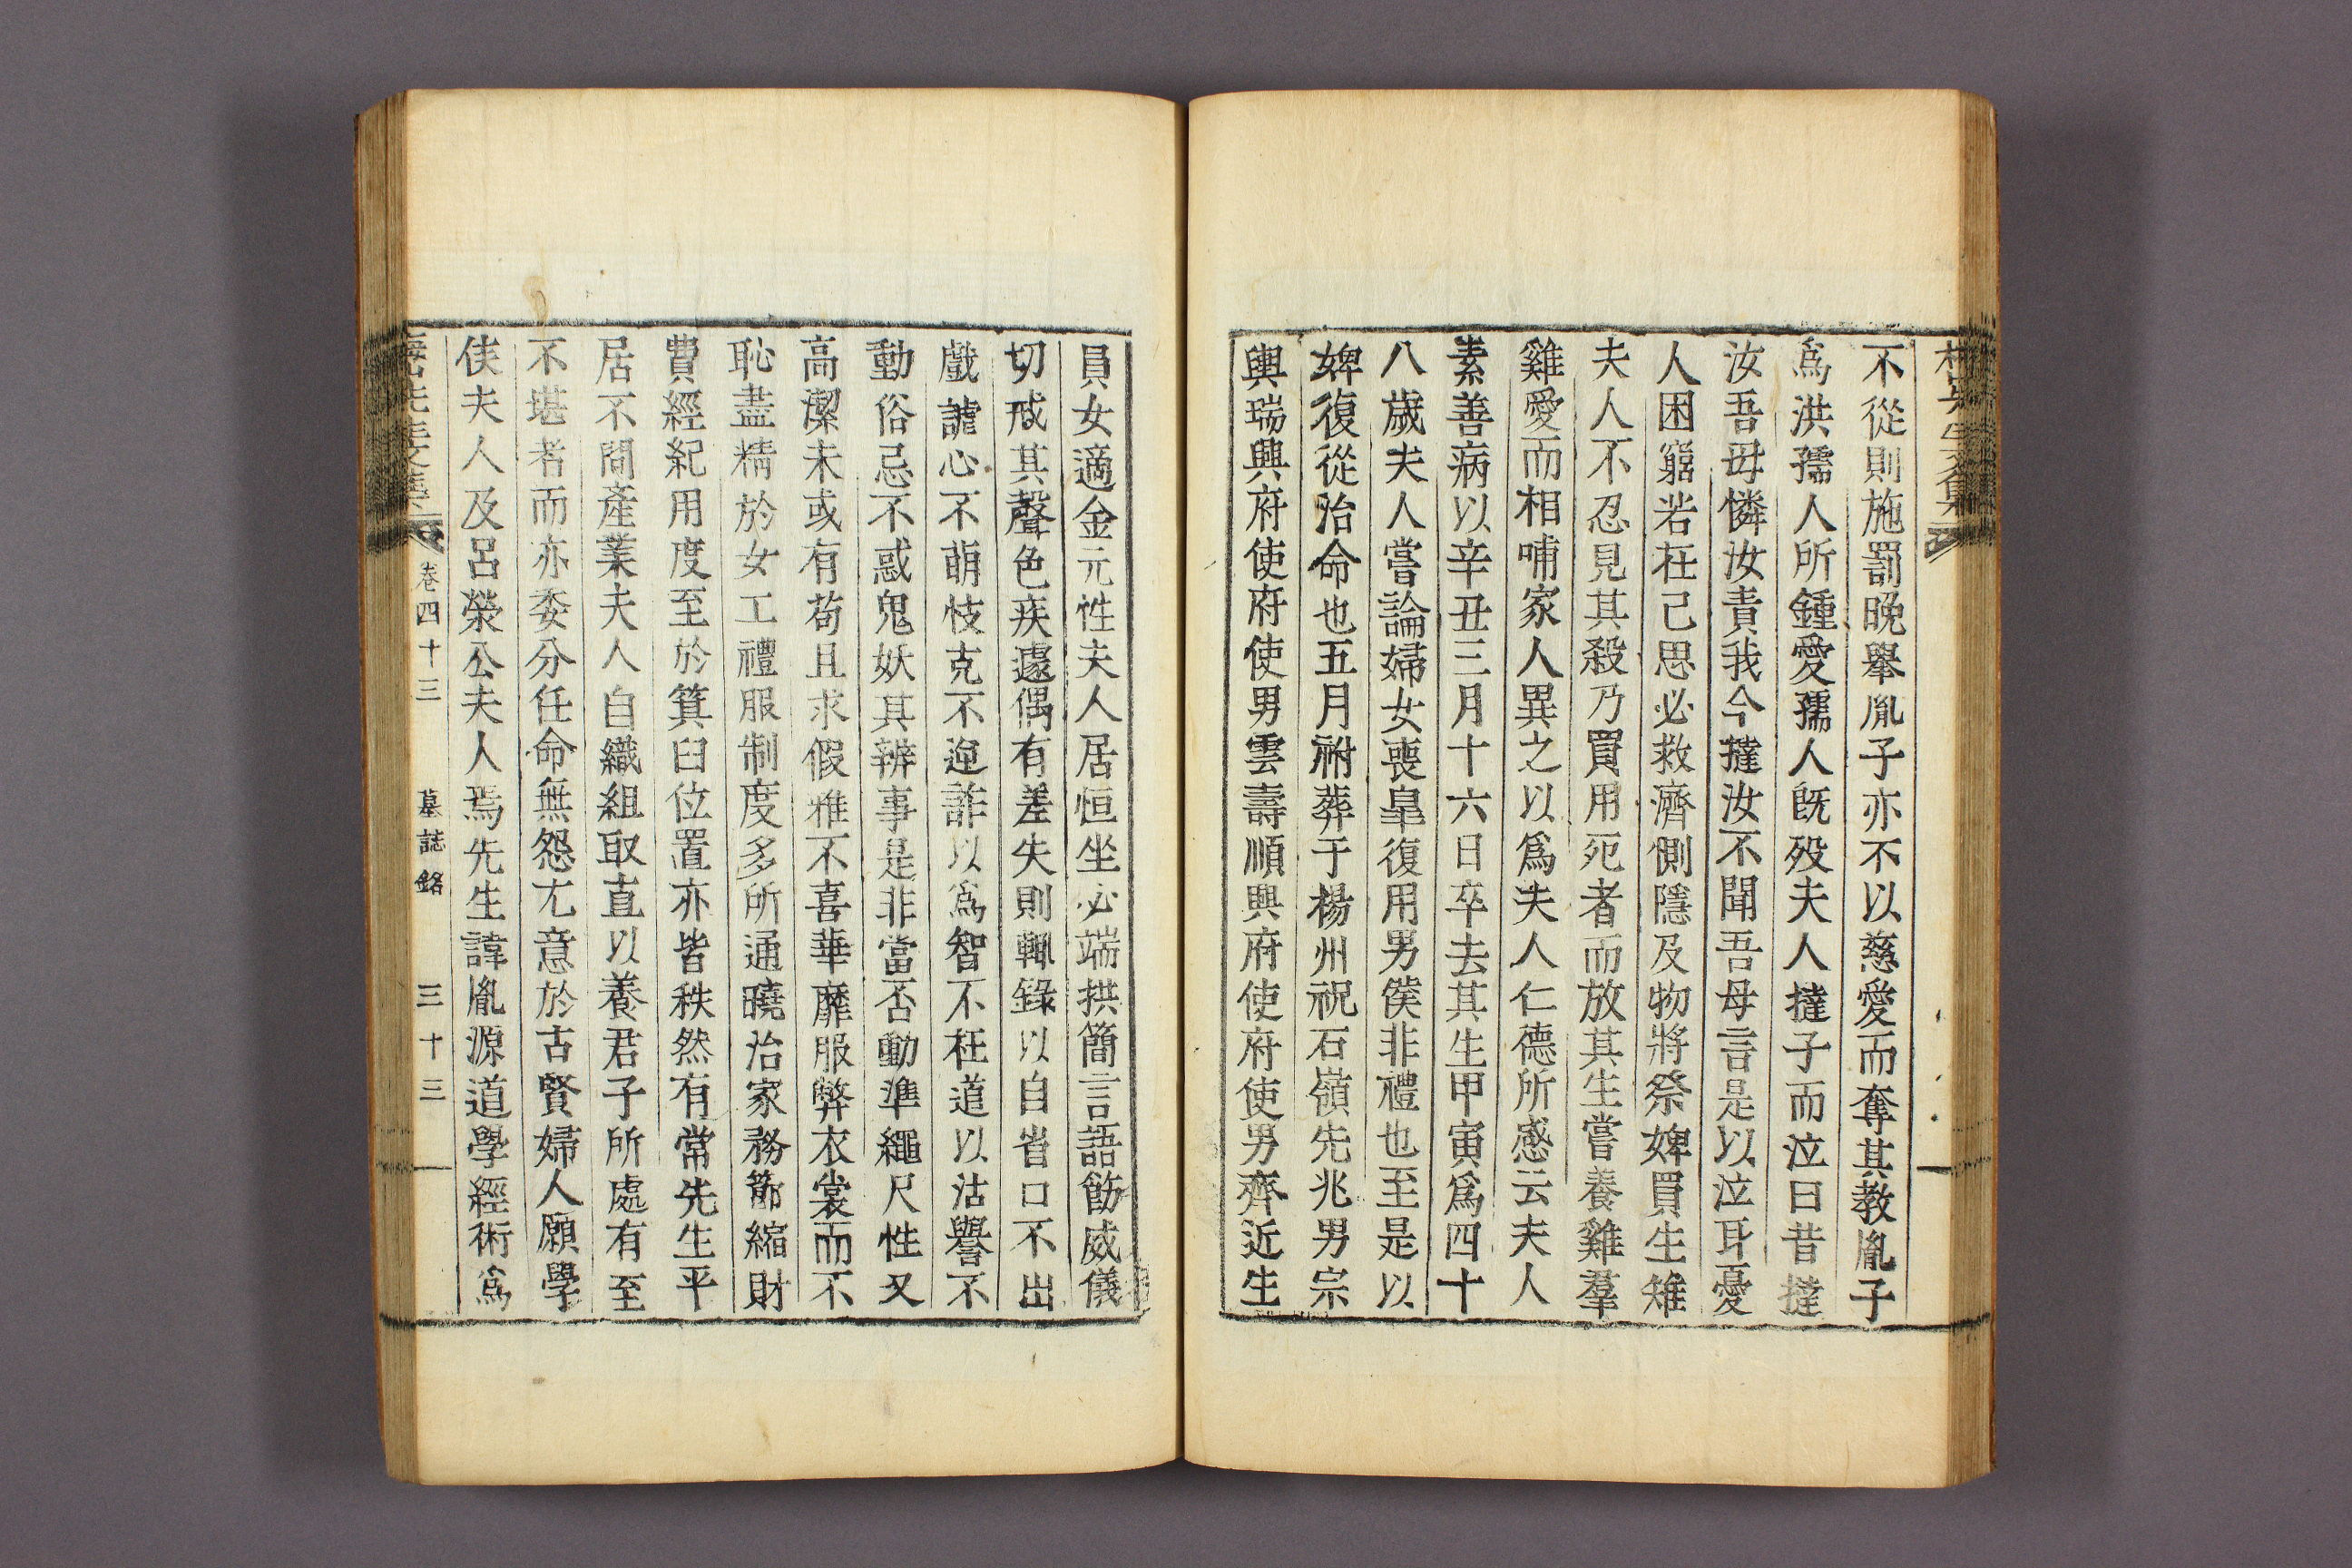 不從則施罰晩舉胤子亦不以慈愛而奪其教胤子
爲洪孺人所鍾愛孺人旣殁夫人撻子而泣曰昔撻
汝吾毋憐汝責我今撻汝不聞吾母言是以泣耳憂
人困窮若在己思必救濟惻隱及物將祭婢買生雉
夫人不忍見其殺乃買用死者而放其生嘗養雞羣
雞愛而相哺家人異之以爲夫人仁德所感云夫人
素善病以辛丑三月十六日卒去其生甲寅爲四十
八歲夫人嘗論婦女喪臯復用男僕非禮也至是以
婢復從治命也五月祔葬于楊州祝石嶺先兆男宗
輿瑞興府使府使男雲壽順興府使府使男齊近生
員女適金元性夫人居恒坐必端拱簡言語飭威儀
切戒其聲色疾遽偶有差失則輒錄以自省口不出
戲謔心不萌忮克不逆詐以爲智不枉道以沽譽不
動俗忌不惑鬼妖其辨事是非當否動準繩尺性又
高潔未或有苟且求假雅不喜華靡服弊衣裳而不
恥盡精於女工禮服制度多所通曉治家務節縮財
費經紀用度至於箕臼位置亦皆秩然有常先生平
居不問產業夫人自織組取直以養君子所處有至
不堪者而亦委分任命無怨尤意於古賢婦人願學
侯夫人及呂滎公夫人焉先生諱胤源道學經術爲
卷四十三 墓誌銘 三十三